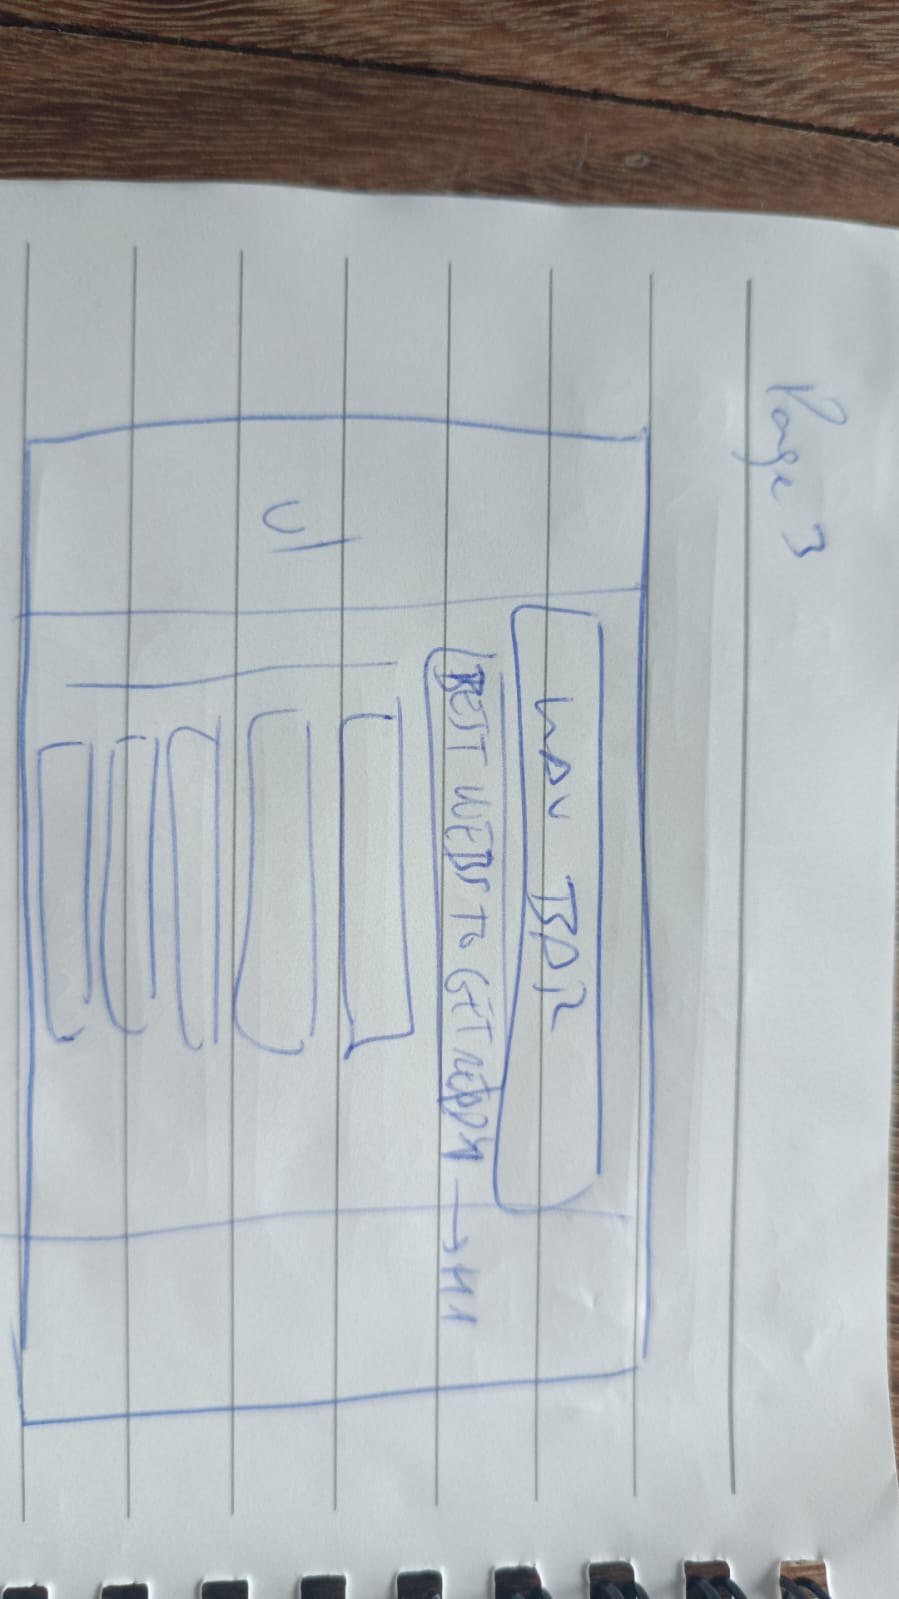 Page 3
NAV BAR
BEST WEBS TO GET READY → H1
ul